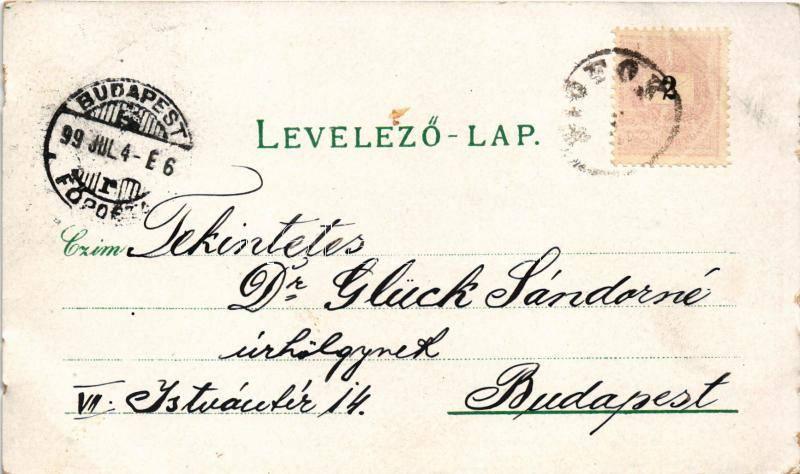 BUDAPEST
99 JUL 4 - E 6
2
LEVELEZŐ-LAP.
Czim Tekintetes
Dr Glück Sándorné
úrhölgynek
VII. Istvántér 14. Budapest